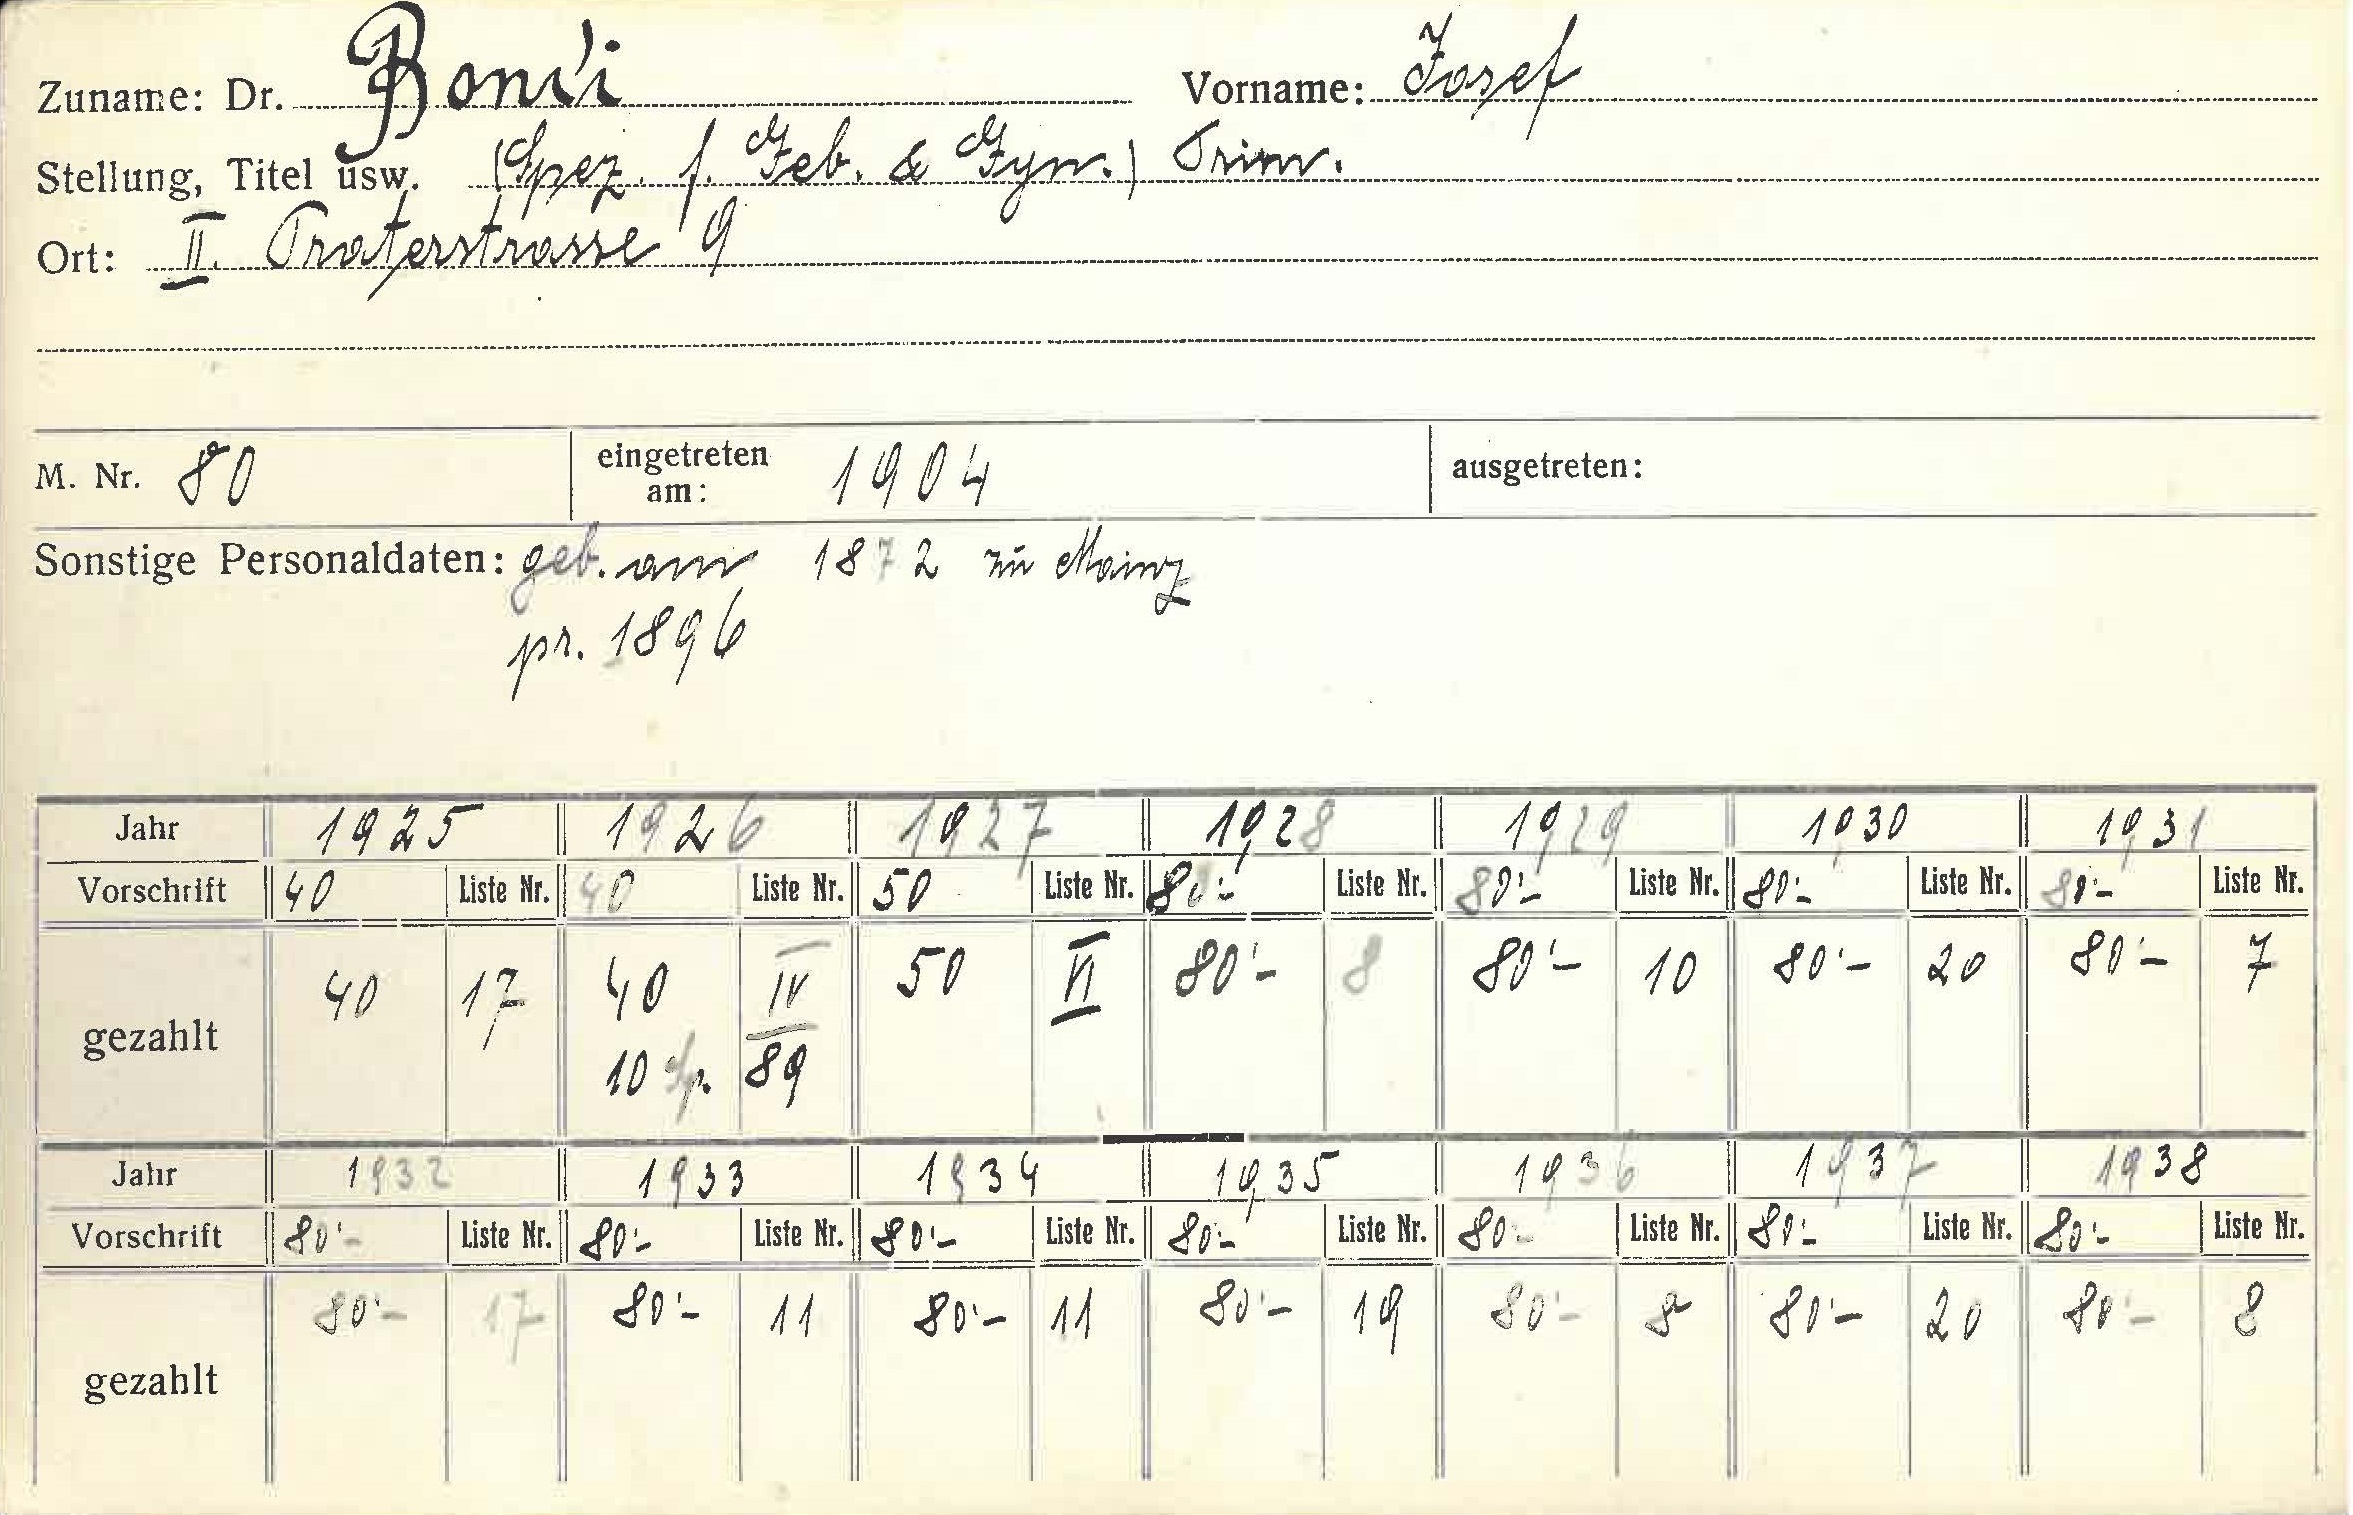 Zuname: Dr. Bondi Vorname: Josef
Stellung, Titel usw. (Spez. f. Geb. & Gyn.) Prim.
Ort: II. Praterstrasse 9
M. Nr. 80 eingetreten am: 1904 ausgetreten:
Sonstige Personaldaten: geb. am 1872 zu Mainz
pr. 1896
Jahr 1925 1926 1927 1928 1929 1930 1931
Vorschrift 40 Liste Nr. 40 Liste Nr. 50 Liste Nr. 80'- Liste Nr. 80'- Liste Nr. 80'- Liste Nr. 80'- Liste Nr.
gezahlt 40 17 40 IV 50 VI 80'- 8 80'- 10 80'- 20 80'- 7
10 Sp. 89
Jahr 1932 1933 1934 1935 1936 1937 1938
Vorschrift 80'- Liste Nr. 80'- Liste Nr. 80'- Liste Nr. 80'- Liste Nr. 80'- Liste Nr. 80'- Liste Nr. 80'- Liste Nr.
gezahlt 80'- 17 80'- 11 80'- 11 80'- 19 80'- 8 80'- 20 80'- 8